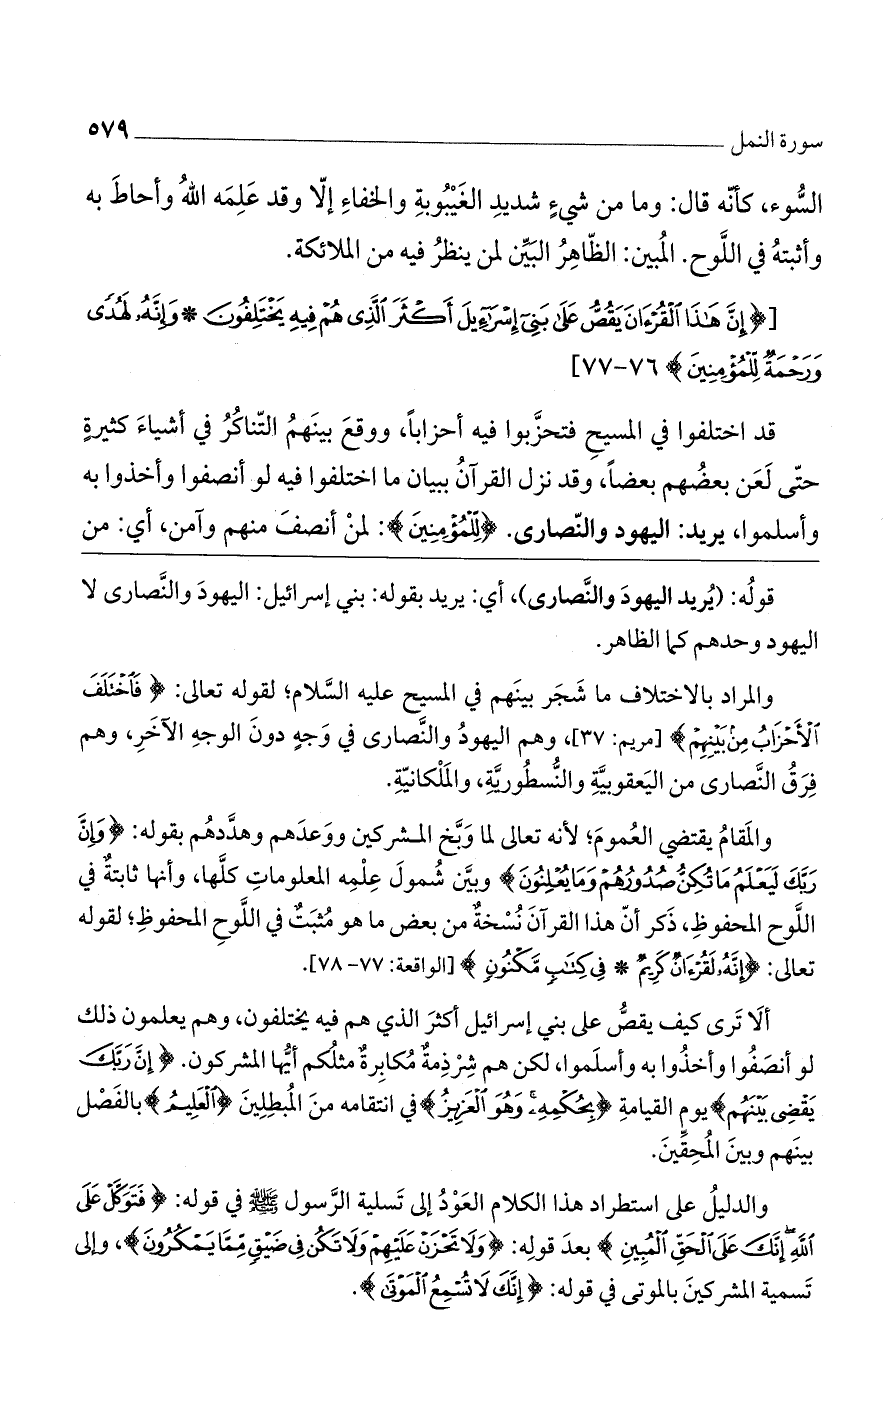 سورة النمل ٥٧٩
السُّوء، كأنّه قال: وما من شيءٍ شديدِ الغَيْبُوبةِ والخفاءِ إلّا وقد عَلِمَه اللهُ وأحاطَ به
وأثبتهُ في اللَّوح. المُبين: الظّاهِرُ البَيِّن لمن ينظرُ فيه من الملائكة.
[﴿إِنَّ هَٰذَا ٱلْقُرْءَانَ يَقُصُّ عَلَىٰ بَنِىٓ إِسْرَٰٓءِيلَ أَكْثَرَ ٱلَّذِى هُمْ فِيهِ يَخْتَلِفُونَ * وَإِنَّهُۥ لَهُدًى
وَرَحْمَةٌ لِّلْمُؤْمِنِينَ﴾ ٧٦-٧٧]
قد اختلفوا في المسيحِ فتحزَّبوا فيه أحزاباً، ووقعَ بينَهمُ التّناكُرُ في أشياءَ كثيرةٍ
حتّى لَعَن بعضُهم بعضاً، وقد نزل القرآنُ ببيان ما اختلفوا فيه لو أنصفوا وأخذوا به
وأسلموا، يريد: اليهود والنّصارى. ﴿لِّلْمُؤْمِنِينَ﴾: لمنْ أنصفَ منهم وآمن، أي: من
قولُه: (يُريد اليهودَ والنَّصارى)، أي: يريد بقوله: بني إسرائيل: اليهودَ والنَّصارى لا
اليهود وحدهم كما الظاهر.
والمراد بالاختلاف ما شَجَر بينَهم في المسيح عليه السَّلام؛ لقوله تعالى: ﴿فَٱخْتَلَفَ
ٱلْأَحْزَابُ مِنۢ بَيْنِهِمْ﴾ [مريم: ٣٧]، وهم اليهودُ والنَّصارى في وَجهٍ دونَ الوجهِ الآخَرِ، وهم
فِرَقُ النَّصارى من اليَعقوبيَّةِ والنُّسطُوريَّةِ، والمَلْكانيّةِ.
والمَقامُ يقتضي العُمومَ؛ لأنه تعالى لما وَبَّخ المشركين ووَعدَهم وهدَّدهُم بقوله: ﴿وَإِنَّ
رَبَّكَ لَيَعْلَمُ مَا تُكِنُّ صُدُورُهُمْ وَمَا يُعْلِنُونَ﴾ وبيَّن شُمولَ عِلْمِه المعلوماتِ كلَّها، وأنها ثابتةٌ في
اللَّوح المحفوظِ، ذَكر أنّ هذا القرآنَ نُسْخةٌ من بعض ما هو مُثبَتٌ في اللَّوحِ المحفوظِ؛ لقوله
تعالى: ﴿إِنَّهُۥ لَقُرْءَانٌ كَرِيمٌ * فِى كِتَٰبٍ مَّكْنُونٍ﴾ [الواقعة: ٧٧-٧٨].
ألَا تَرى كيف يقصُّ على بني إسرائيل أكثرَ الذي هم فيه يختلفون، وهم يعلمون ذلك
لو أنصَفُوا وأخذُوا به وأسلَموا، لكن هم شِرْذِمةٌ مُكابِرةٌ مثلُكم أيُّها المشركون. ﴿إِنَّ رَبَّكَ
يَقْضِى بَيْنَهُم﴾ يوم القيامةِ ﴿بِحُكْمِهِۦ وَهُوَ ٱلْعَزِيزُ﴾ في انتقامه منَ المُبطِلينَ ﴿ٱلْعَلِيمُ﴾ بالفَصْل
بينَهم وبينَ المُحِقِّينَ.
والدليلُ على استطراد هذا الكلام العَوْدُ إلى تَسلية الرَّسول ﷺ في قوله: ﴿فَتَوَكَّلْ عَلَى
ٱللَّهِ إِنَّكَ عَلَى ٱلْحَقِّ ٱلْمُبِينِ﴾ بعدَ قولِه: ﴿وَلَا تَحْزَنْ عَلَيْهِمْ وَلَا تَكُن فِى ضَيْقٍ مِّمَّا يَمْكُرُونَ﴾، وإلى
تَسمية المشركينَ بالموتى في قوله: ﴿إِنَّكَ لَا تُسْمِعُ ٱلْمَوْتَىٰ﴾.